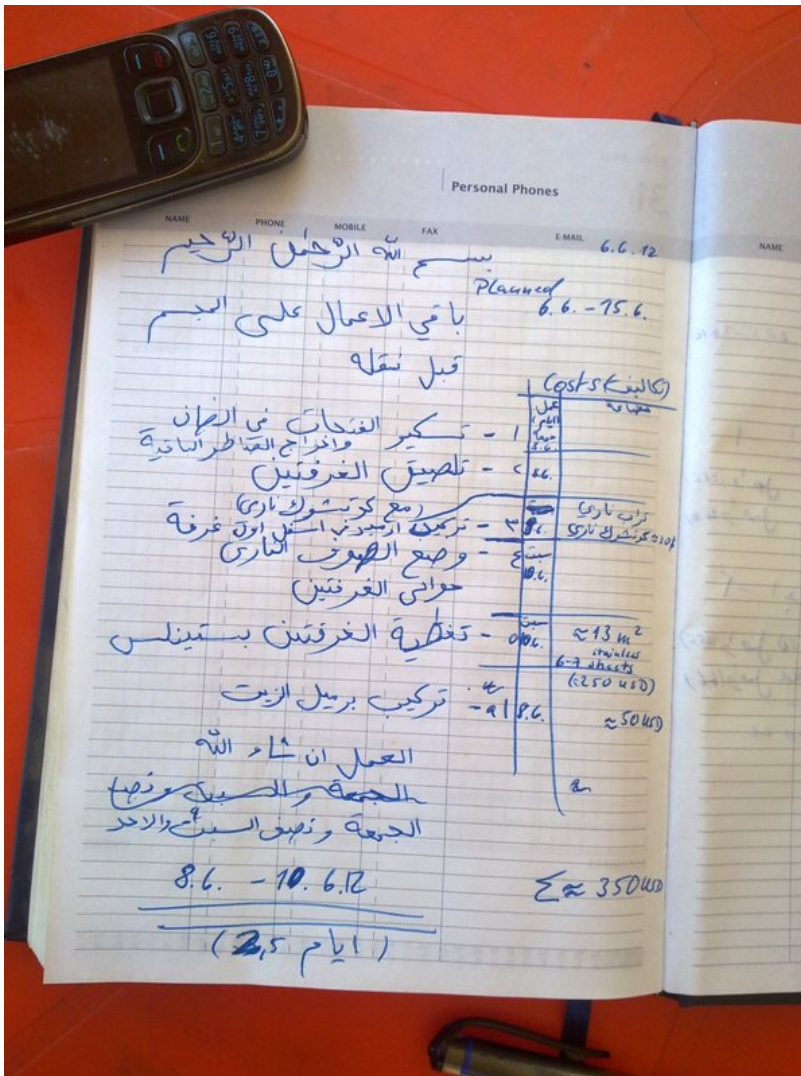 Personal Phones
NAME PHONE MOBILE FAX E-MAIL
NAME
6.6.12
بسم الله الرحمن الرحيم
Planned
6.6. - 15.6.
باقي الاعمال على المجسم
قبل نقله
Costs (تكاليف)
عمل
١ - تسكير الفتحات في
واخراج القناطر الباقية
٢ - تلصيق الغرفتين
8.6.
(مع كرتشوك ناري)
تراب ناري
كرتشوك ناري
٣ - تركيب اول غرفة
٤ - وضع الصوف الناري
سبت
حوالي الغرفتين
٥ - تغطية الغرفتين بستينلس
سبت
≈ 13 m²
stainless
6-7 sheets
(≈250 USD)
تركيب برميل الزيت
8.6.
≈ 50 USD
العمل ان شاء الله
الجمعة والسبت ونصف
الجمعة ونصف السبت والاحد
8.6. - 10.6.12
Σ ≈ 350 USD
(2,5 ايام)